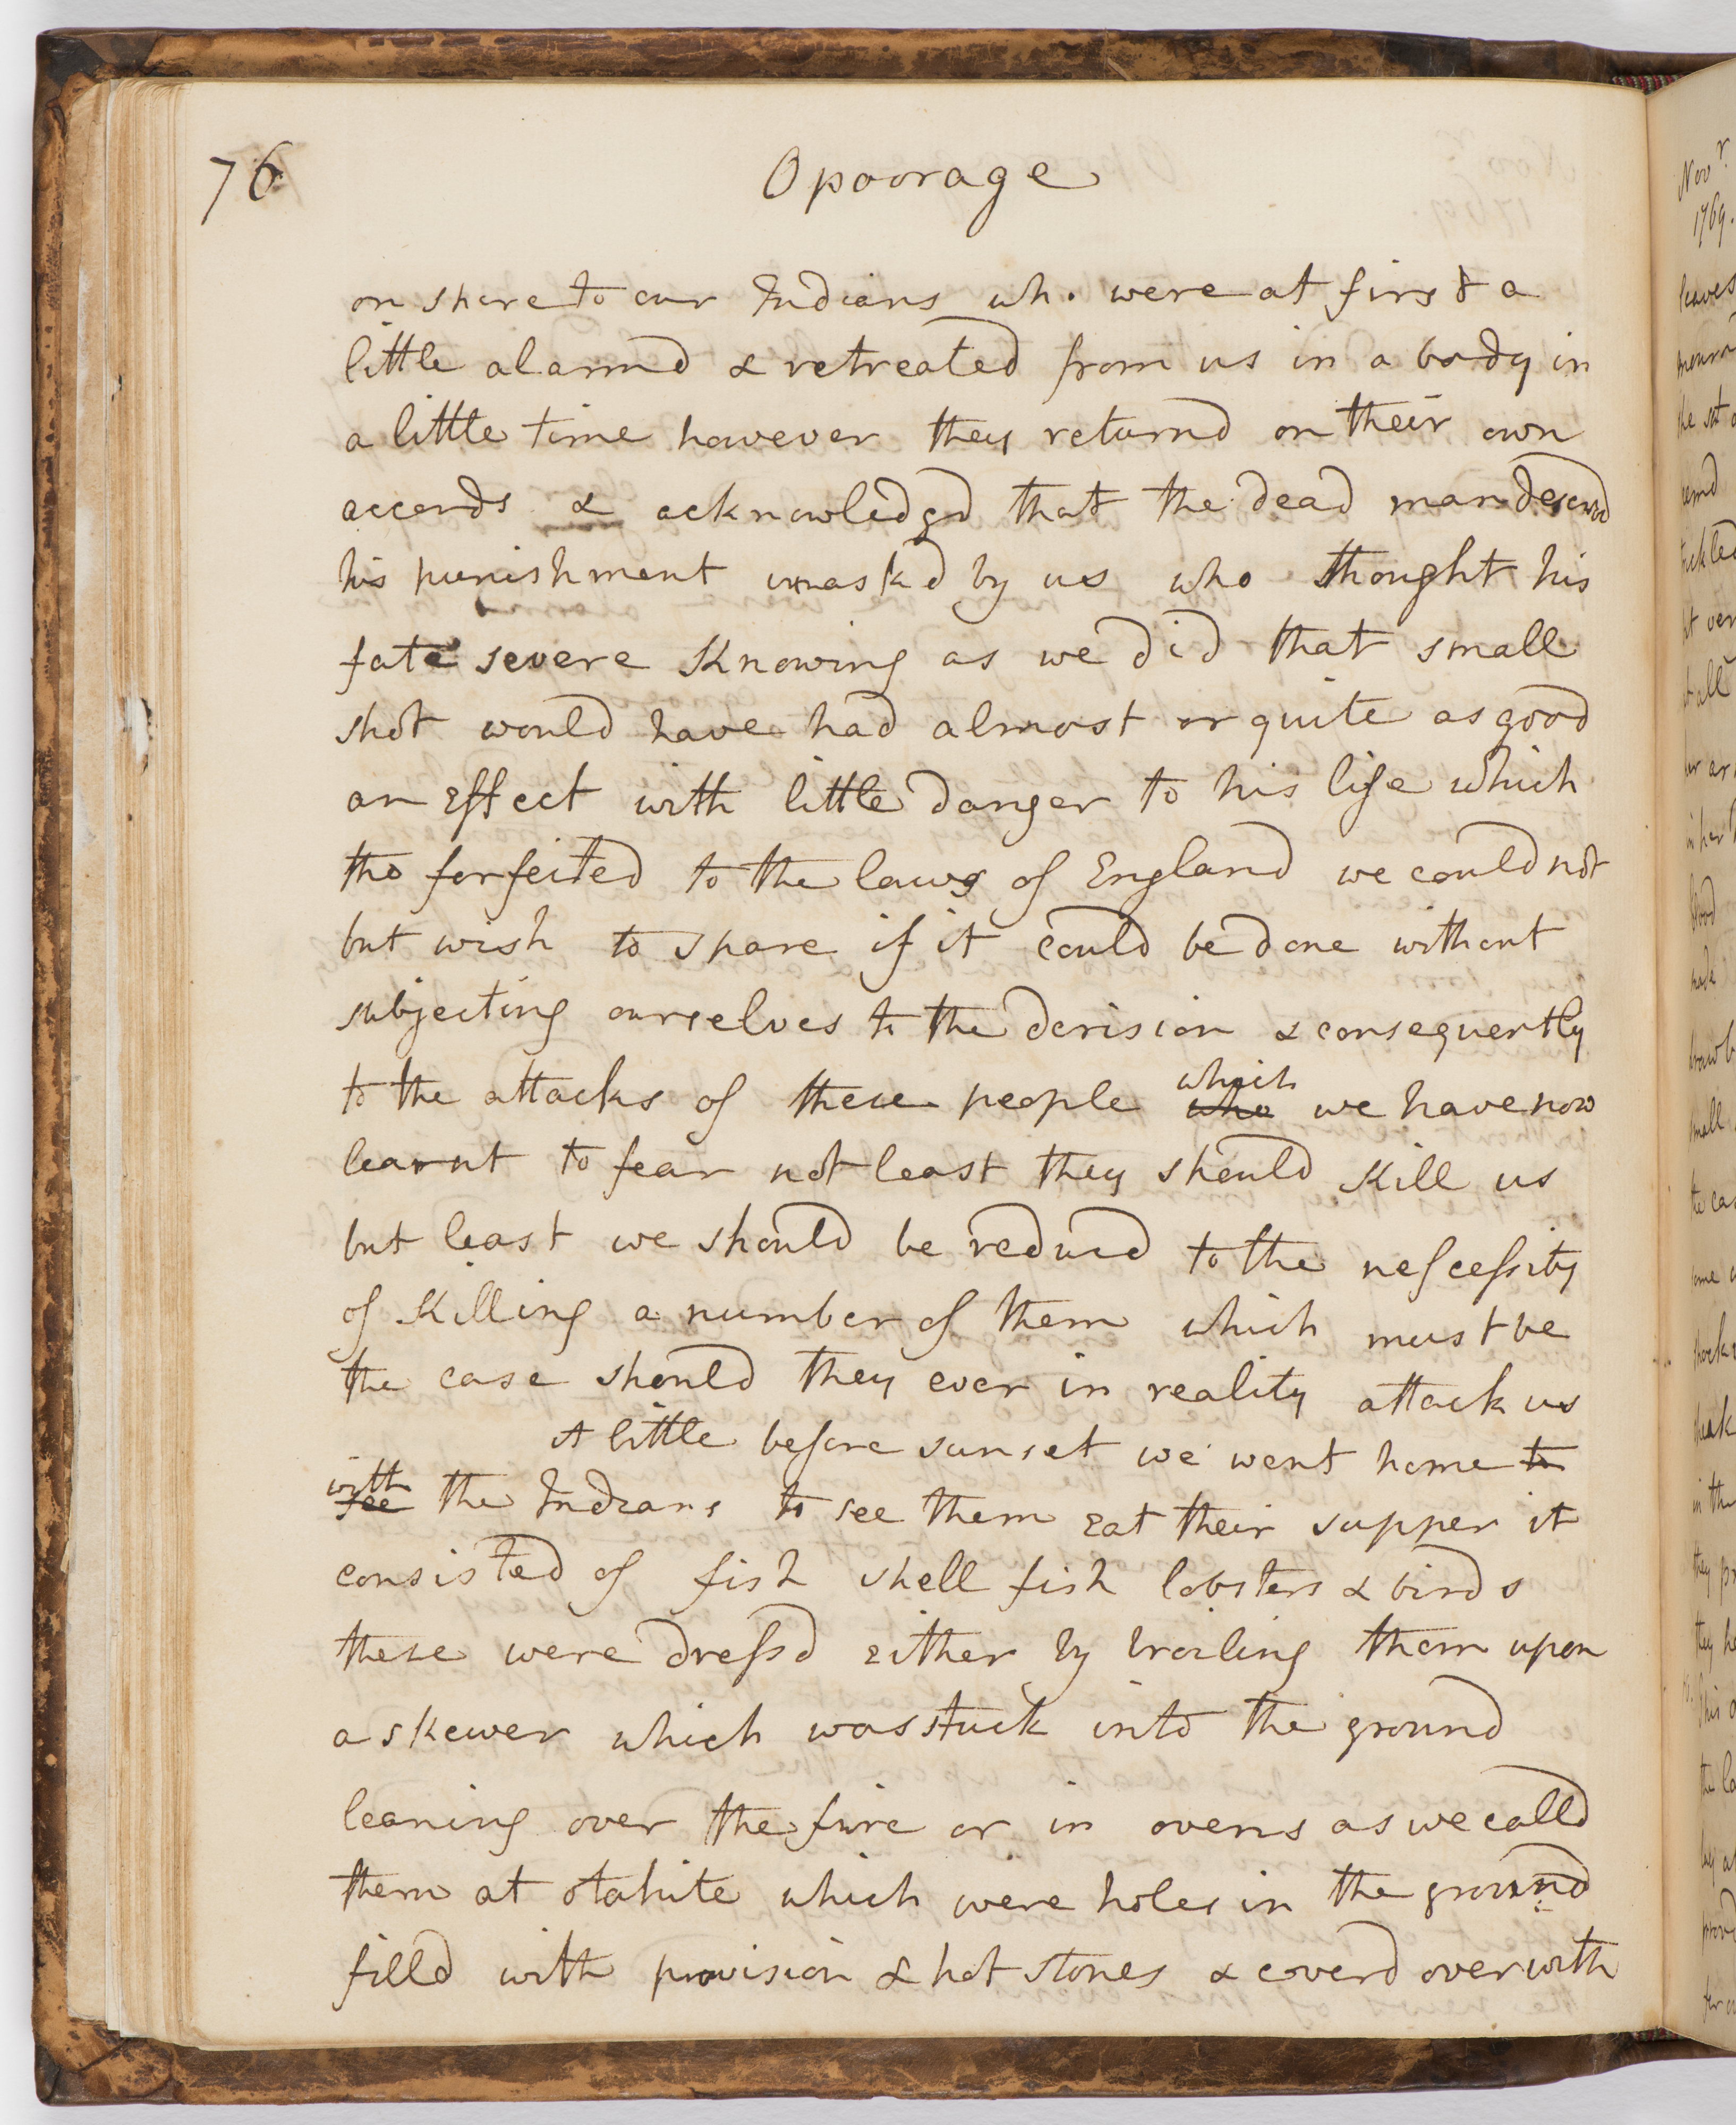 76 Opoorage
on shore to our Indians who were at first a
little alarmd & retreated from us in a body in
a little time however they returnd on their own
accords & acknowledgd that the dead man deservd
his punishment unaskd by us who thought his
fate severe Knowing as we did that small
shot would have had almost or quite as good
an Effect with little danger to his life which
tho forfeited to the laws of England we could not
but wish to spare if it could be done without
subjecting ourselves to the derision & consequently
to the attacks of these people who which we have now
learnt to fear not least they should Kill us
but least we should be reducd to the nescessity
of Killing a number of them which must be
the case should they ever in reality attack us
A little before sunset we went home to
see with the Indians to see them Eat their supper it
consisted of fish shell fish lobsters & birds
these were dressd Either by broiling them upon
a skewer which was stuck into the ground
leaning over the fire or in ovens as we calld
them at otahite which were holes in the ground
filld with provision & hot stones & coverd over with
Novr.
1769.
leaves